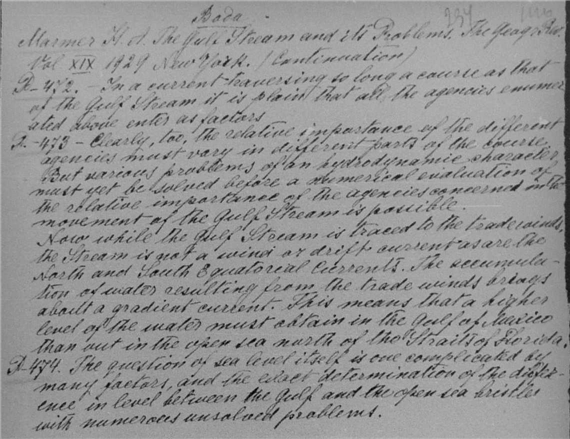 Boda
237
Marmer H. A. The Gulf Stream and its Problems. The Geogr. Rev.
Vol XIX 1929 New York. (Continuation)
P-472.- In a current traversing so long a course as that
of the Gulf Stream it is plain that all the agencies enumer
ated above enter as factors
P-473- Clearly, too, the relative importance of the different
agencies must vary in different parts of the course
But various problems of an hydrodynamic character,
must yet be solved before a numerical evaluation of
the relative importance of the agencies concerned in the
movement of the Gulf Stream is possible.
Now while the Gulf Stream is traced to the trade winds,
the Stream is not a wind or drift current as are the
North and South Equatorial Currents. The accumula-
tion of water resulting from the trade winds brings
about a gradient current. This means that a higher
level of the water must obtain in the Gulf of Mexico
than out in the open sea north of the Straits of Florida.
P-474. The question of sea level itself is one complicated by
many factors, and the exact determination of the differ-
ence in level between the Gulf and the open sea bristles
with numerous unsolved problems.